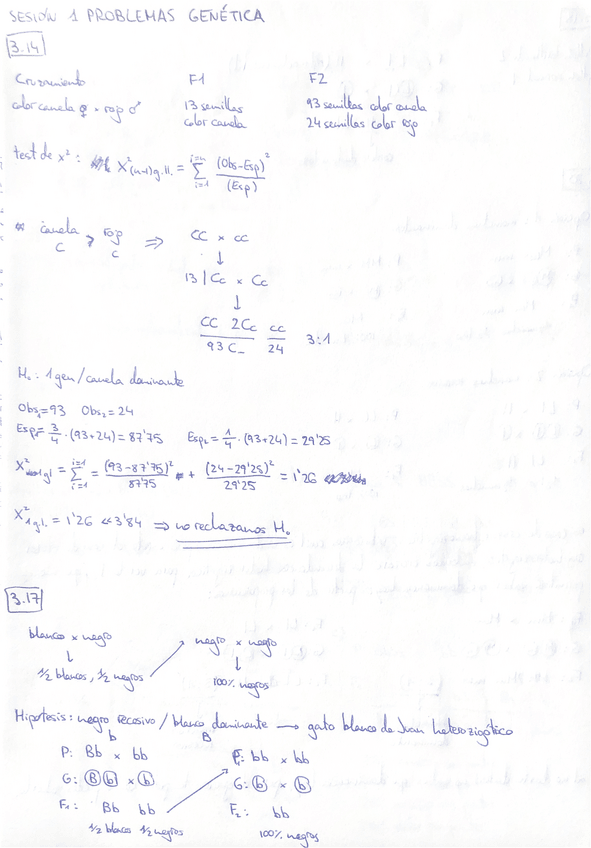 SESIÓN 1 PROBLEMAS GENÉTICA
3.14
Cruzamiento F1 F2
color canela ♀ × rojo ♂ 13 semillas 93 semillas color canela
color canela 24 semillas color rojo
test de x²: X²(n-1)g.ll. = Σ i=1 i=n (Obs-Esp)² / (Esp)
canela > rojo ⇒ CC × cc
C c ↓
13 | Cc × Cc
↓
CC 2Cc cc 3:1
93 C_ 24
H₀: 1 gen/canela dominante
Obs₁=93 Obs₂=24
Esp₁= 3/4 · (93+24) = 87'75 Esp₂= 1/4 · (93+24) = 29'25
X² 1gl = Σ i=1 = (93-87'75)² / 87'75 + (24-29'25)² / 29'25 = 1'26
X² 1g.l. = 1'26 << 3'84 ⇒ no rechazamos H₀
3.17
blanco × negro negro × negro
↓ ↓
1/2 blancos, 1/2 negros 100% negros
Hipótesis: negro recesivo / blanco dominante → gato blanco de Juan heterozigótico
b B
P: Bb × bb P: bb × bb
G: B b × b G: b × b
F₁: Bb bb F₂: bb
1/2 blanco 1/2 negros 100% negros